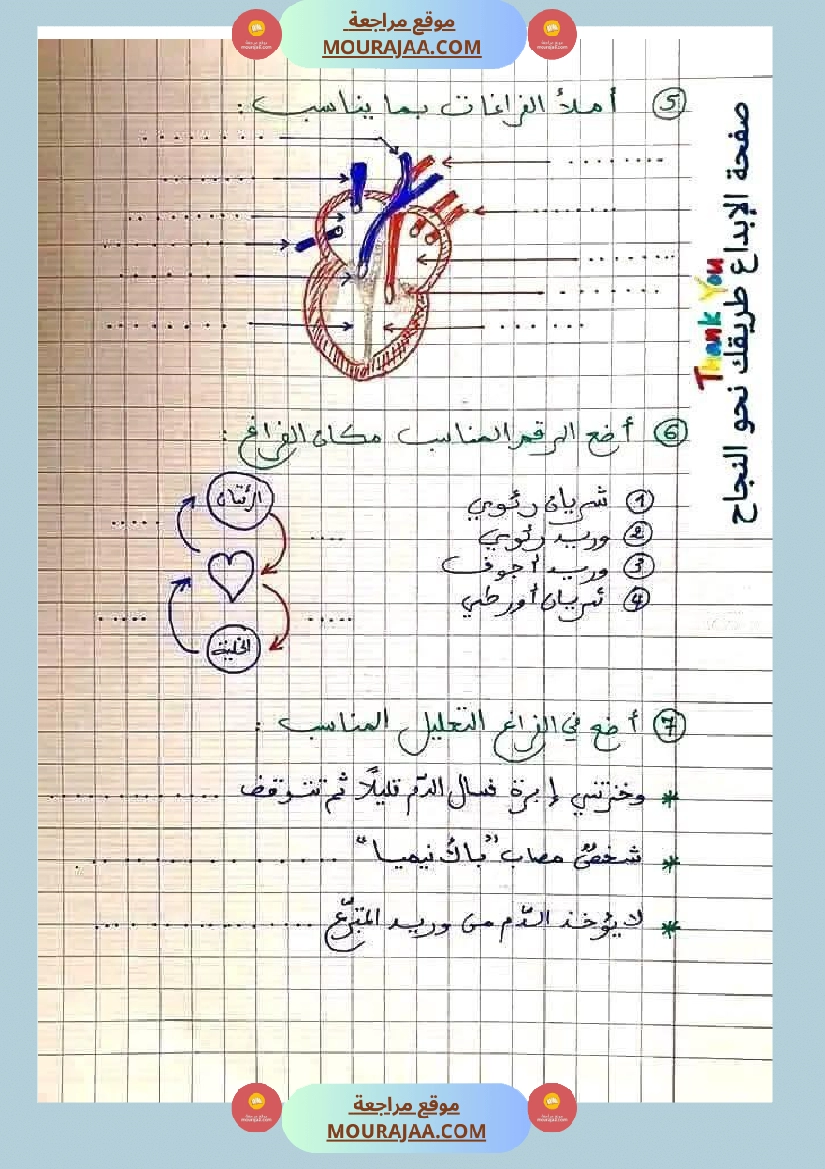 موقع مراجعة
MOURAJAA.COM
5 أملأ الفراغات بما يناسب :
6 أضع الرقم المناسب مكان الفراغ :
1 شريان رئوي
2 وريد رئوي
3 وريد أجوف
4 شريان أورطي
الرئتان
.....
....
.....
.....
الخلية
7 أضع في الفراغ التعليل المناسب :
* وخزتني إبرة فسال الدّم قليلًا ثم تتوقف ..................
* شخصٌ مصاب "باكُ نيميا" ..................
* لا يُؤخذ الدّم من وريد المتبرّع ..................
صفحة الإبداع طريقك نحو النجاح
Thank You
موقع مراجعة
MOURAJAA.COM